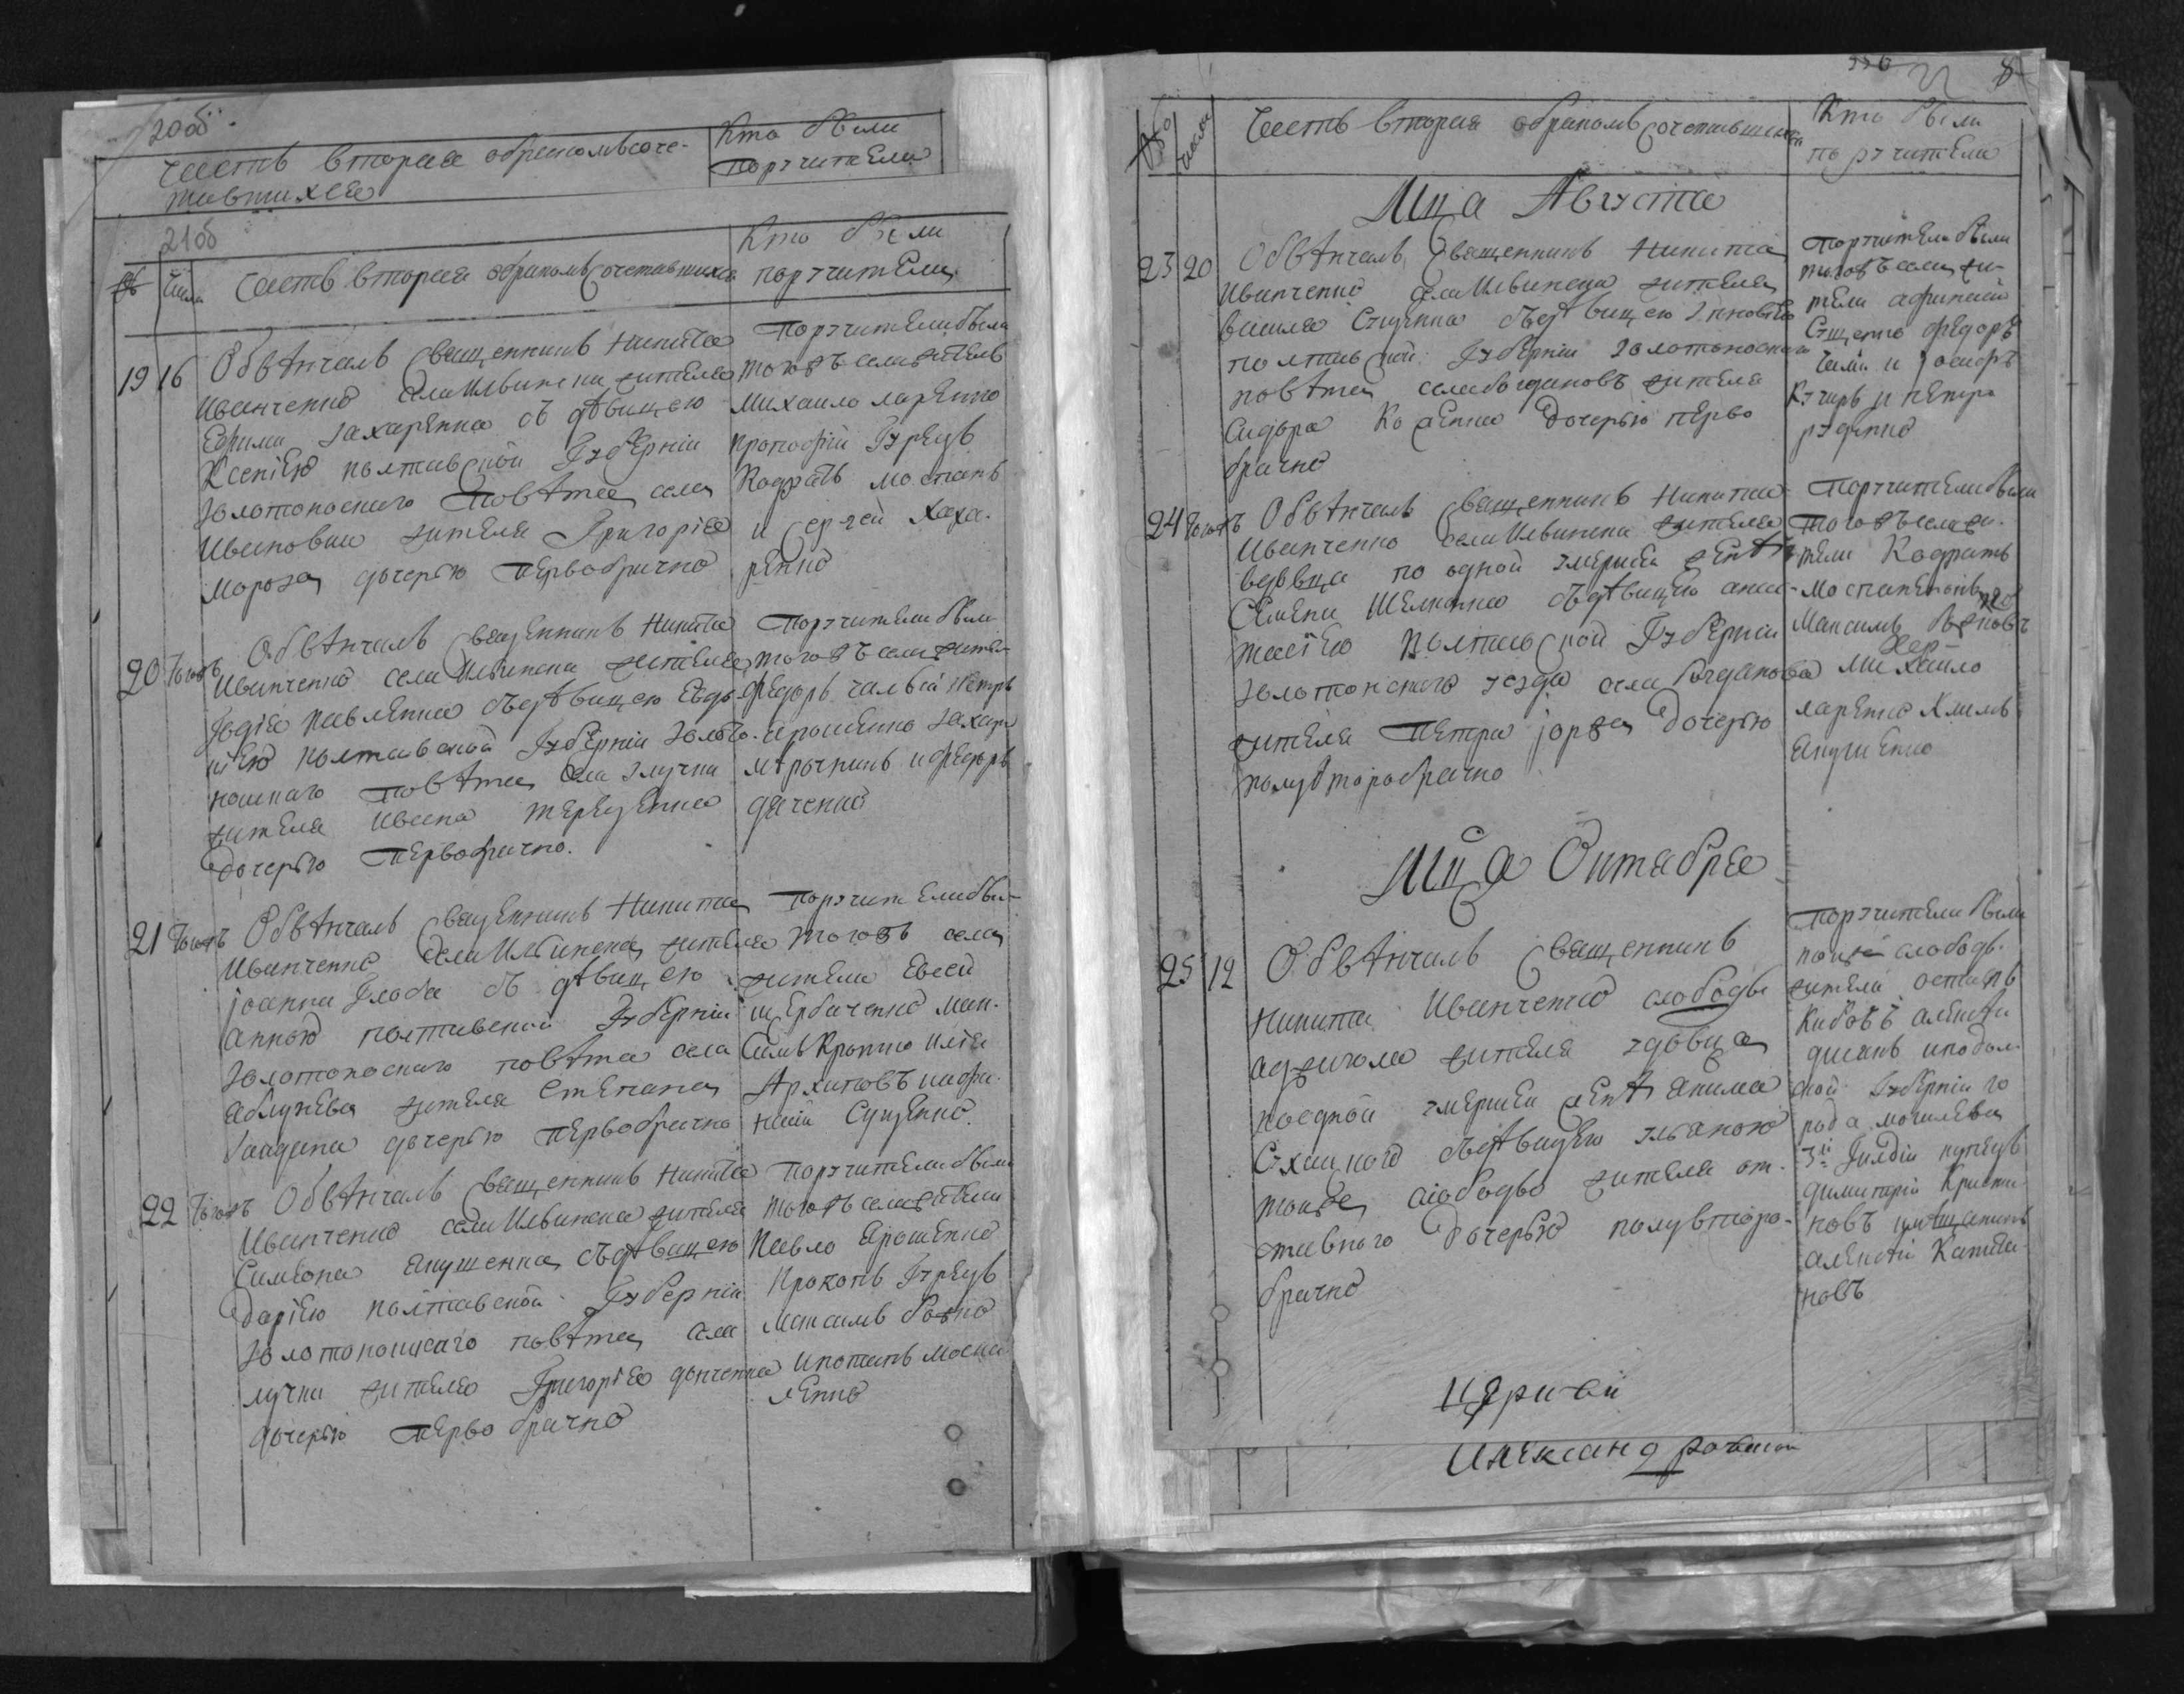 20 об.
Часть вторая обракомъ соче-
тавшихся
Кто были
поручители
21 об
№
числа
Часть вторая обракомъ сочетавшихся
Кто были
поручители
19 16 Обвѣнчалъ священникъ Никита
Иванченко села Ильински жителя
Ефима Захаренка съ дѣвицею
Ксеніею полтавской губерніи
золотоноскаго повѣта села
Ивановки жителя Григорія
Мороза дочерью первобрачно
Поручители были
тогожъ села жители
Михаило Ларенко
Прокофій Гурецъ
Кодратъ Моспанъ
и Сергей Заха-
ренко
20 тогожъ Обвѣнчалъ священникъ Никита
Иванченко села Ильински жителя
Гордія Павленка съ дѣвицею Евдо-
кіею полтавской губерніи золото-
ношкаго повѣта села
жителя Ивана Терещенка
дочерью первобрачно.
Поручители были
тогожъ села жите-
Федоръ Чалый Петръ
Ярошенко Захаръ
Мѣрочникъ и Федоръ
Дяченко
21 тогожъ Обвѣнчалъ священникъ Никита
Иванченко села Ильинска жителя
Іоанна Глоба съ дѣвицею
Анною полтавской губерніи
золотоноскаго повѣта села
жителя Степана
дочерью первобрачно
Поручители бы-
тогожъ села
жители Евсей
Щербаченко Мак-
симъ Кропко Илія
Архиповъ и Афа-
насій Сущенко.
22 тогожъ Обвѣнчалъ священникъ Никита
Иванченко села Ильинска жителя
Симеона Янушенка съ дѣвицею
Даріею полтавской губерніи
золотоношкаго повѣта села
жителя Григорія Дяченка
дочерью первобрачно
Поручители были
тогожъ села жители
Павло Ярошенко
Прокопъ Гурецъ
Максимъ
и Потапъ
336
8
№
числа
Часть вторая обракомъ сочетавшихся
Кто были
поручители
Мца Августа
23 20 Обвѣнчалъ Священникъ Никита
Иванченко села Ильинска жителя
Василя Сущенка съ дѣвицею Зиновіею
полтавской губерніи золотоноскаго
повѣта села Богдановъ жителя
Сидора дочерью перво
брачно
Поручители были
тогожъ села жи-
тели Афанасій
Сущенко Федоръ
и Іосифъ
Кучиръ и Петро
Руденко
24 тогожъ Обвѣнчалъ Священникъ Никита
Иванченко села Ильински жителя
вдовца по одной умершей женѣ
Семена съ дѣвицею Анас-
тасіею полтавской губерніи
золотонскаго уезда села Богданова
жителя Петра дочерью
полувторобрачно
Поручители были
тогожъ села жи-
тели Кодратъ
Моспаненокъ
Максимъ
Михайло
Ларенко Климъ
Янушенко
Мца Октября
25 12 Обвѣнчалъ Священникъ
Никита Иванченко слободы
Аджигола жителя удовца
поодной умершей женѣ Якима
съ дѣвицею Ульяною
тоиже слободы жителя от-
ставного дочерью полувторо-
брачно
Поручители были
тоиже слободы
жители Остапъ
Алексѣй
и подол-
ской губерніи го
рода Могилева
3й гилдіи купецъ
Димитрій
и мѣщанинъ
Алексѣй
новъ